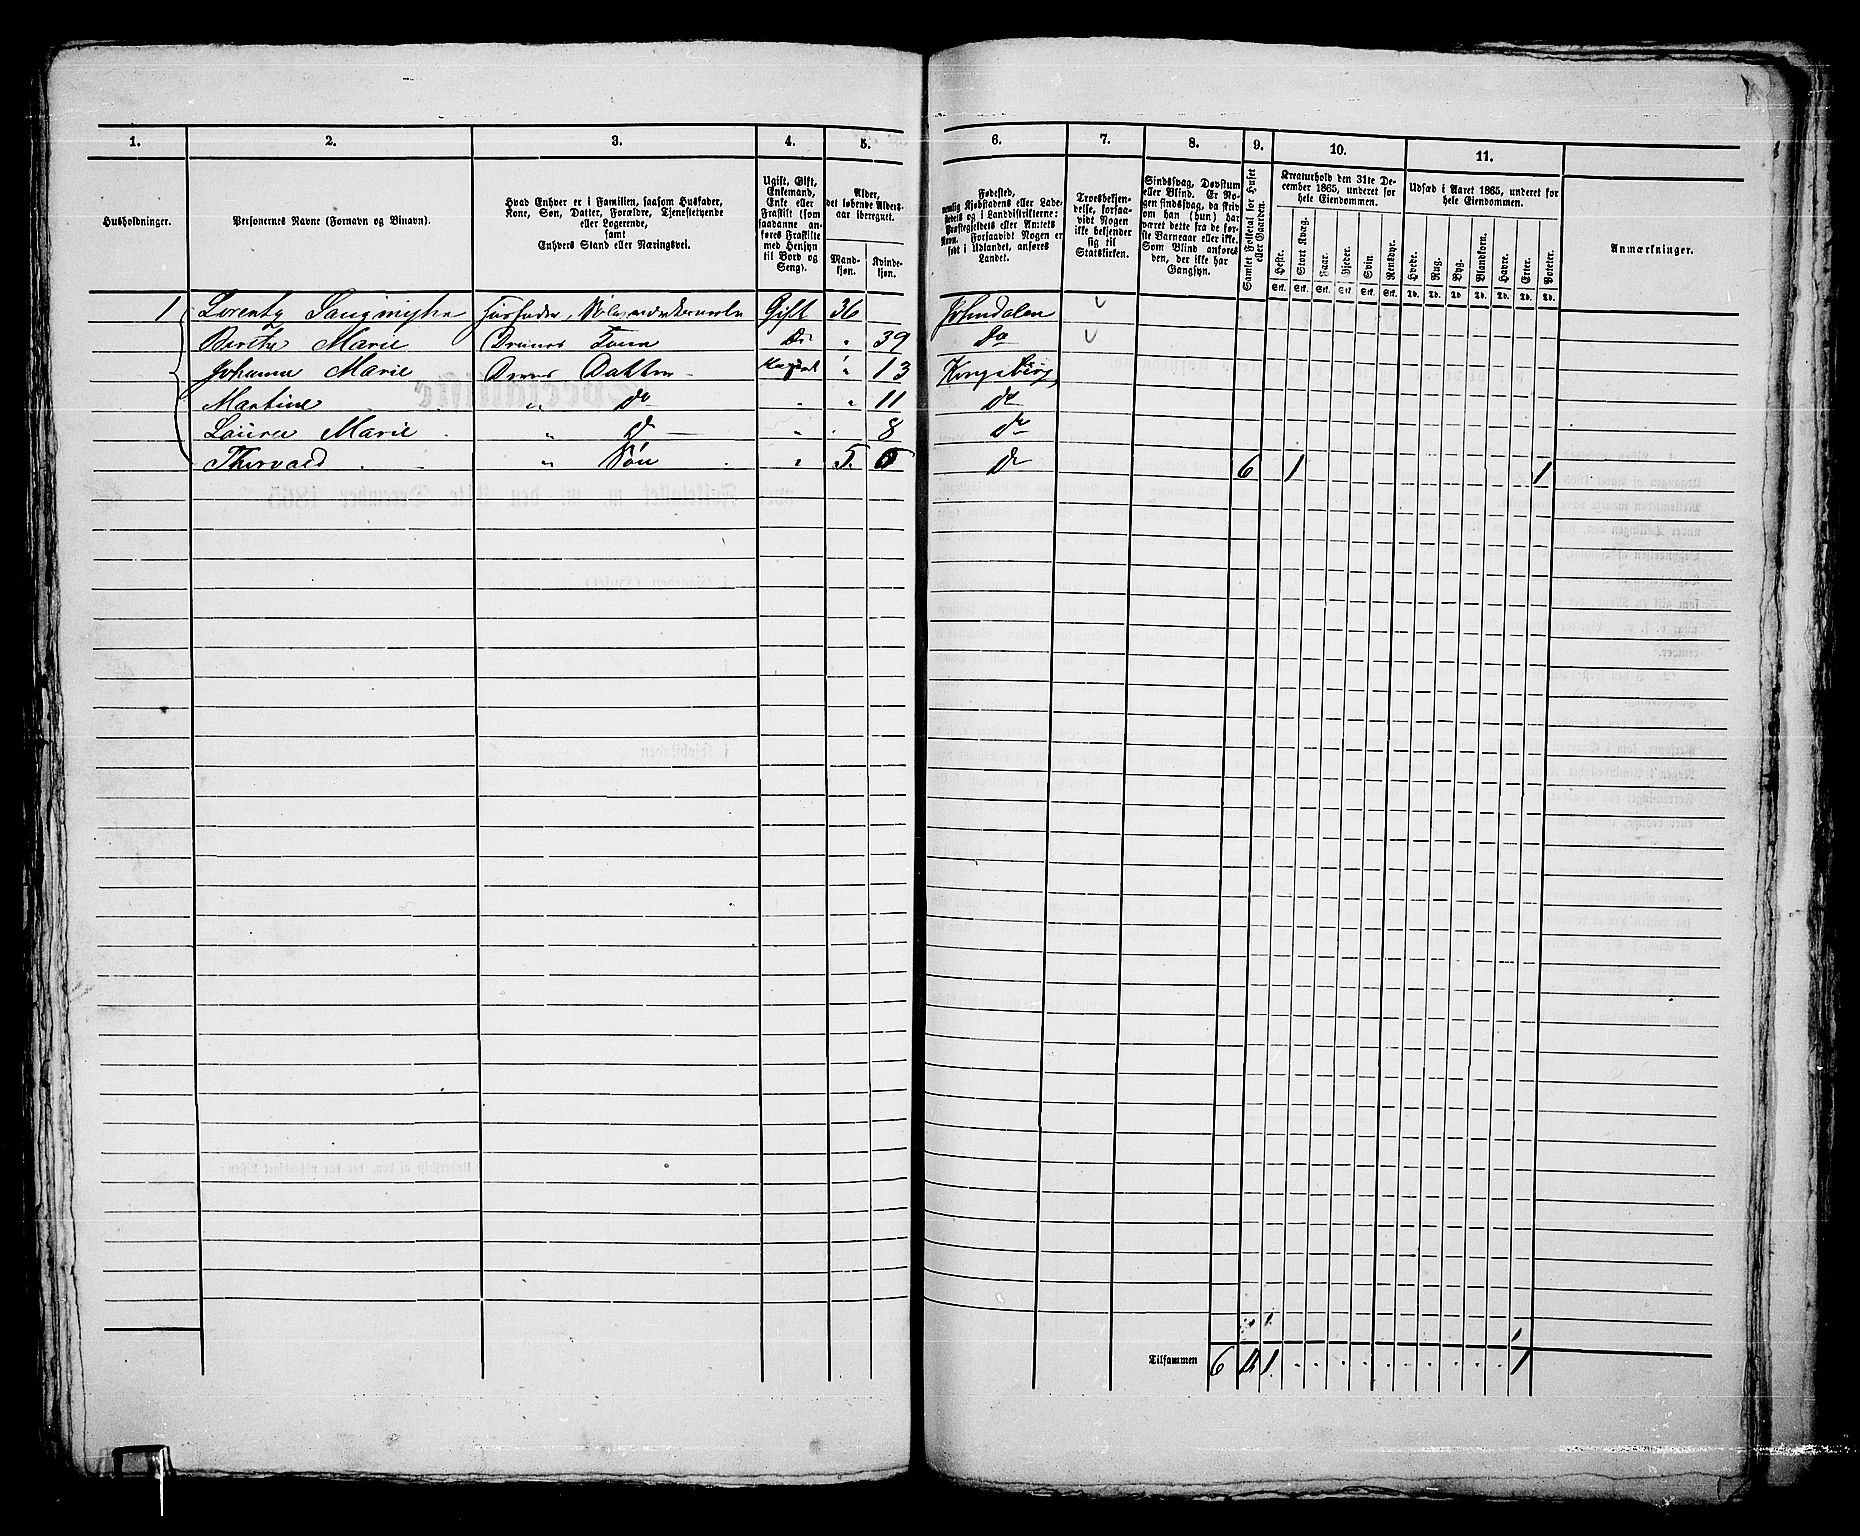 1. 2. 3. 4. 5. 6. 7. 8. 9. 10. 11.
Husholdninger.
Personernes Navne (Fornavn og Binavn).
Hvad Enhver er i Familien, saasom Husfader,
Kone, Søn, Datter, Forældre, Tjenestetyende
eller Logerende,
samt
Enhvers Stand eller Næringsvei.
Ugift, Gift,
Enkemand,
Enke eller
Fraskilt (som
saadanne an-
føres Fraskilte
med Hensyn
til Bord og
Seng).
Alder,
det løbende Alders-
aar iberegnet.
Mand-
kjøn.
Kvinde-
kjøn.
Fødested,
nemlig Kjøbstadens eller Lade-
stedets og i Landdistrikterne:
Præstegjeldets eller Amtets
Navn. Forsaavidt Nogen er
født i Udlandet, anføres
Landet.
Troesbekjen-
delse, forsaa-
vidt Nogen
ikke bekjender
sig til
Statskirken.
Sindssvag, Døvstum
eller Blind. Er No-
gen sindssvag, da skriv
om han (hun) har
været dette fra de før-
ste Barneaar eller ikke.
Som Blind anføres
den, der ikke har
Gangsyn.
Samlet Folketal for Huset
eller Gaarden.
Kreaturhold den 31te De-
cember 1865, underet for
hele Eiendommen.
Heste. Stort Kvæg. Faar. Gjeder. Svin. Rensdyr.
Stk. Stk. Stk. Stk. Stk. Stk.
Udsæd i Aaret 1865, underet for
hele Eiendommen.
Hvede. Rug. Byg. Blandkorn. Havre. Erter. Poteter.
Td. Td. Td. Td. Td. Td. Td.
Anmærkninger.
1 Lorentz Gift 36 Johndalen
Berthe Marie Kone Do " 39 Do
Johanne Marie Datter " 13 Kongsberg
Martine " do " " 11 do
Laura Marie " d " 8 do
Thorvald " Søn " 5 do 6 1 1
Tilsammen 6 1 1